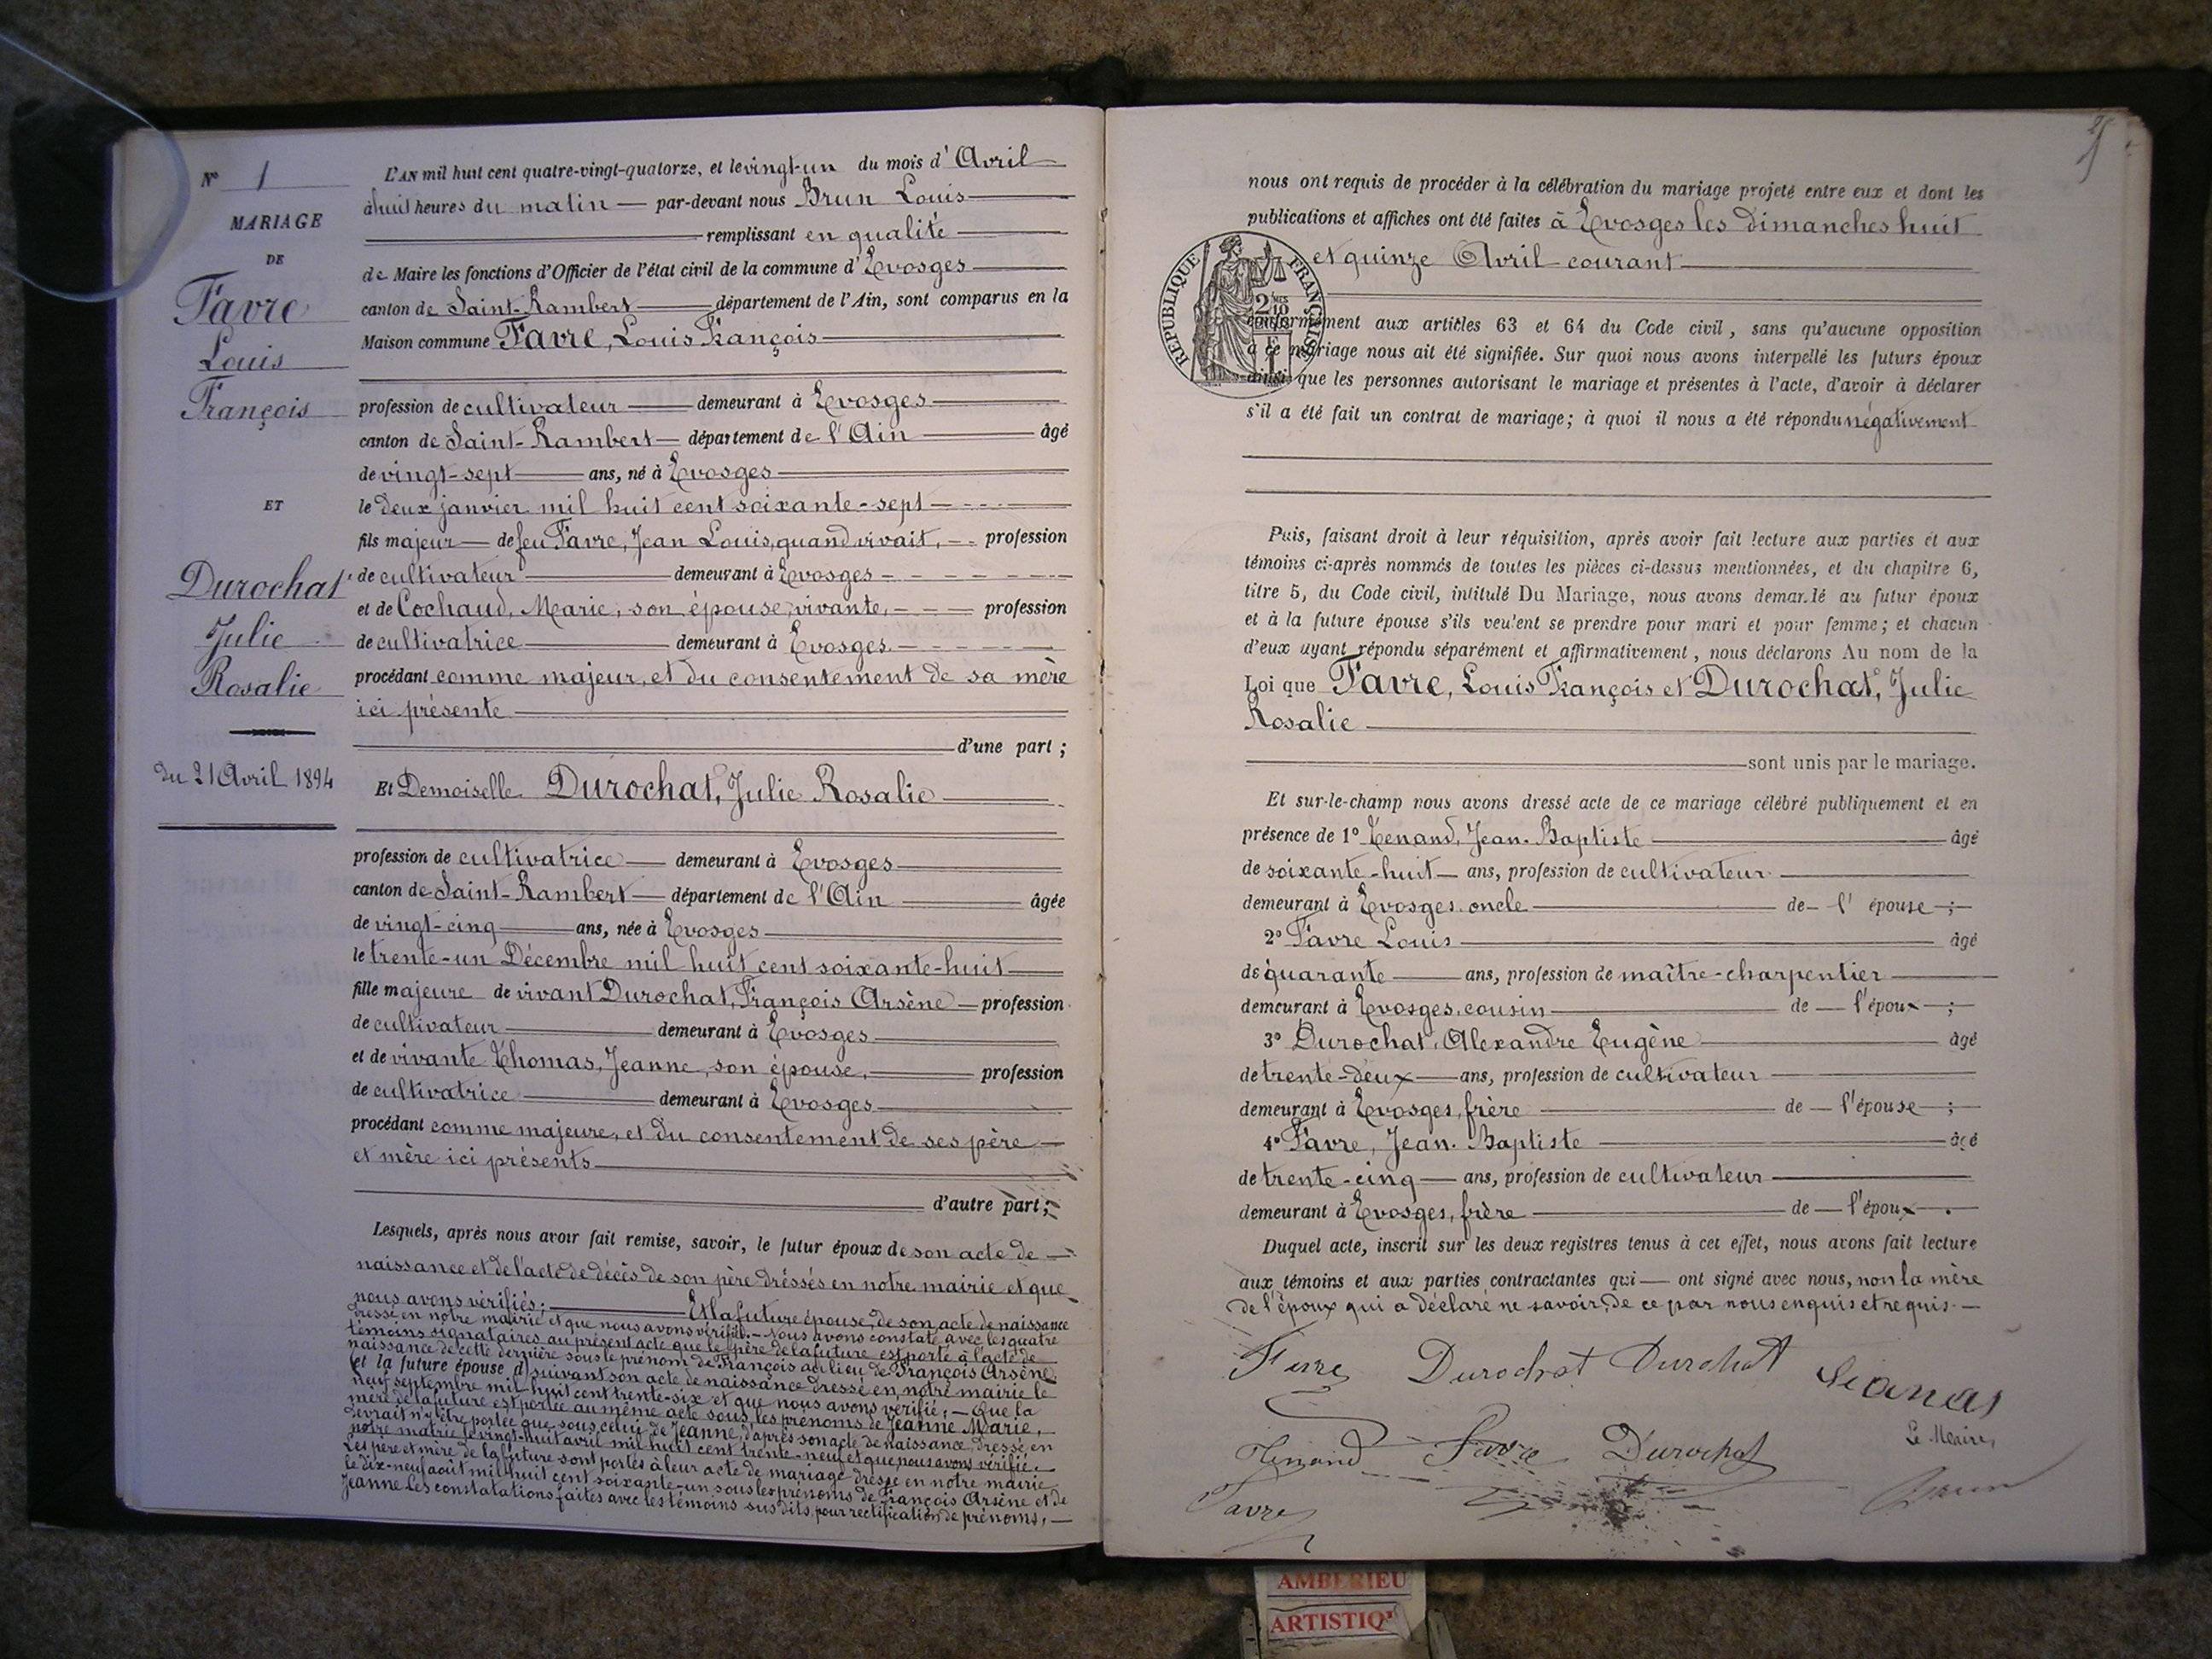 N° 1
MARIAGE
DE
Favre
Louis
François
ET
Durochat
Julie
Rosalie
du 21 Avril 1894
L'AN mil huit cent quatre-vingt-quatorze, et le vingt-un du mois d'Avril
à huit heures du matin par-devant nous Brun Louis
remplissant en qualité
de Maire les fonctions d'Officier de l'état civil de la commune d'Evosges
canton de Saint-Rambert département de l'Ain, sont comparus en la
Maison commune Favre, Louis François
profession de cultivateur demeurant à Evosges
canton de Saint-Rambert département de l'Ain âgé
de vingt-sept ans, né à Evosges
le deux janvier mil huit cent soixante-sept
fils majeur de feu Favre, Jean Louis, quand vivait, profession
de cultivateur demeurant à Evosges
et de Cochaud, Marie, son épouse, vivante, profession
de cultivatrice demeurant à Evosges
procédant comme majeur, et du consentement de sa mère
ici présente
d'une part ;
Et Demoiselle Durochat, Julie Rosalie
profession de cultivatrice demeurant à Evosges
canton de Saint-Rambert département de l'Ain âgée
de vingt-cinq ans, née à Evosges
le trente-un Décembre mil huit cent soixante-huit
fille majeure de vivant Durochat, François Arsène profession
de cultivateur demeurant à Evosges
et de vivante Thomas, Jeanne, son épouse, profession
de cultivatrice demeurant à Evosges
procédant comme majeure, et du consentement de ses père
et mère ici présents
d'autre part ;
Lesquels, après nous avoir fait remise, savoir, le futur époux de son acte de
naissance et de l'acte de décès de son père dréssés en notre mairie et que
nous avons vérifiés. Et la future épouse, de son acte de naissance
dressé en notre mairie et que nous avons vérifié. — Nous avons constaté avec les quatre
témoins signataires au présent acte que le père de la future est porté à l'acte de
naissance de cette dernière sous le prénom de François au lieu de François Arsène
(et la future épouse d) suivant son acte de naissance dressé en notre mairie le
neuf septembre mil huit cent trente-six et que nous avons vérifié ; — Que la
mère de la future est portée au même acte sous les prénoms de Jeanne Marie,
devrait n'y être portée que sous celui de Jeanne, d'après son acte de naissance, dressé en
notre mairie le vingt-huit avril mil huit cent trente-neuf et que nous avons vérifié.
Les père et mère de la future sont portés à leur acte de mariage dressé en notre mairie
le dix-neuf août mil huit cent soixante-un sous les prénoms de François Arsène et de
Jeanne. Les constatations faites avec les témoins susdits, pour rectification de prénoms, —
nous ont requis de procéder à la célébration du mariage projeté entre eux et dont les
publications et affiches ont été faites à Evosges les dimanches huit
et quinze Avril courant
REPUBLIQUE FRANÇAISE
conformément aux articles 63 et 64 du Code civil, sans qu'aucune opposition
à ce mariage nous ait été signifiée. Sur quoi nous avons interpellé les futurs époux
ainsi que les personnes autorisant le mariage et présentes à l'acte, d'avoir à déclarer
s'il a été fait un contrat de mariage ; à quoi il nous a été répondu négativement
Puis, faisant droit à leur réquisition, après avoir fait lecture aux parties et aux
témoins ci-après nommés de toutes les pièces ci-dessus mentionnées, et du chapitre 6,
titre 5, du Code civil, intitulé Du Mariage, nous avons demandé au futur époux
et à la future épouse s'ils veulent se prendre pour mari et pour femme ; et chacun
d'eux ayant répondu séparément et affirmativement, nous déclarons Au nom de la
Loi que Favre, Louis François et Durochat, Julie
Rosalie
sont unis par le mariage.
Et sur-le-champ nous avons dressé acte de ce mariage célébré publiquement et en
présence de 1° Tenand, Jean-Baptiste âgé
de soixante-huit ans, profession de cultivateur
demeurant à Evosges oncle de l'épouse ;
2° Favre Louis âgé
de quarante ans, profession de maître-charpentier
demeurant à Evosges, cousin de l'époux ;
3° Durochat, Alexandre Eugène âgé
de trente-deux ans, profession de cultivateur
demeurant à Evosges, frère de l'épouse ;
4° Favre, Jean-Baptiste âgé
de trente-cinq ans, profession de cultivateur
demeurant à Evosges, frère de l'époux.
Duquel acte, inscrit sur les deux registres tenus à cet effet, nous avons fait lecture
aux témoins et aux parties contractantes qui ont signé avec nous, non la mère
de l'époux qui a déclaré ne savoir, de ce par nous enquis et requis. —
Favre Durochat Durochat
Tenand Favre Durochat Le Maire,
Favre Brun
AMBERIEU
ARTISTIQ